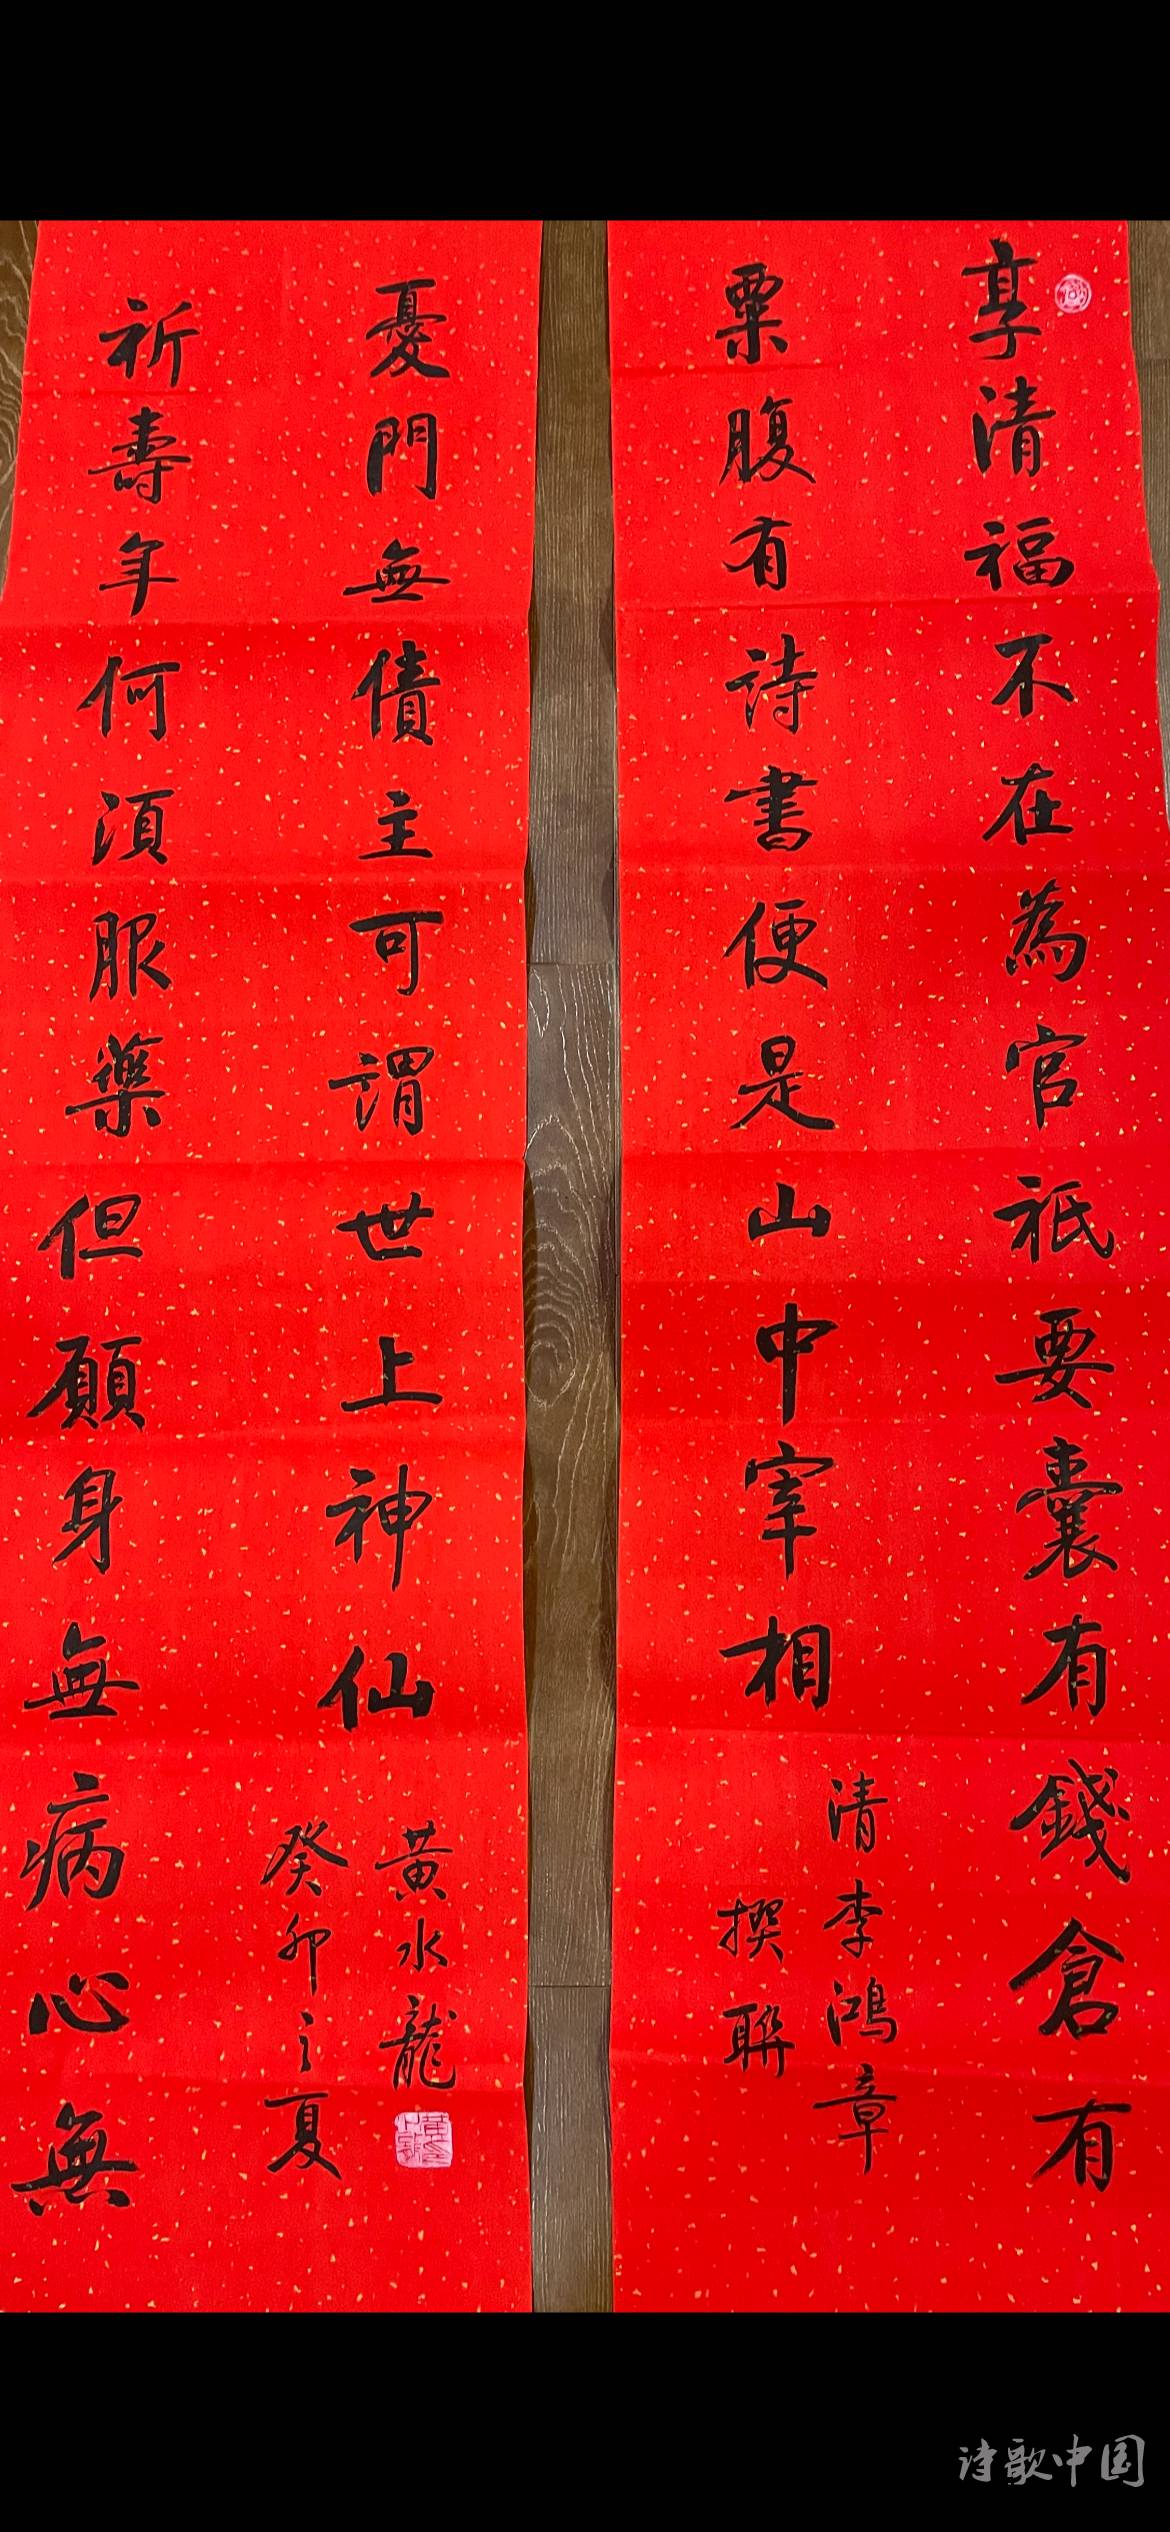 享清福不在為官祇要囊有錢倉有
粟腹有詩書便是山中宰相
清李鴻章
撰聯
祈壽年何須服藥但願身無病心無
憂門無債主可謂世上神仙
黃水龍
癸卯之夏
诗歌中国